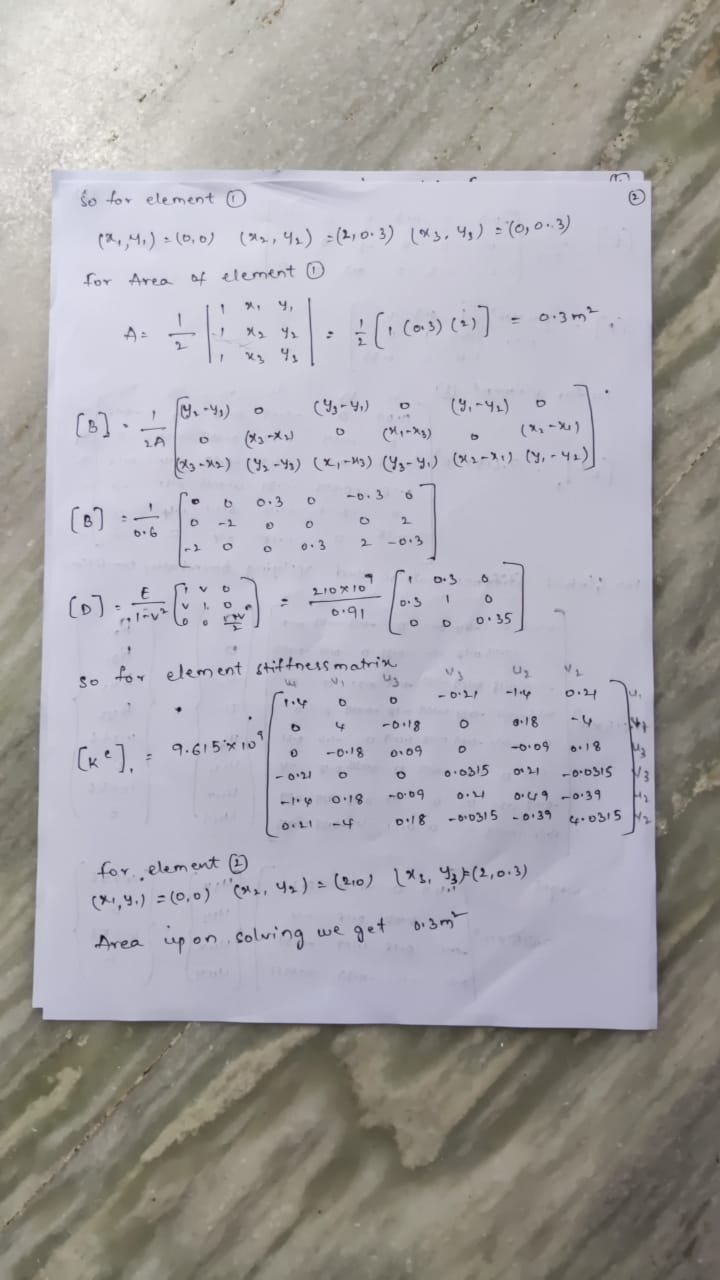 ②
So for element ①
(x₁,y₁) = (0,0) (x₂, y₂) = (2,0.3) (x₃, y₃) = (0, 0.3)
for Area of element ①
A = 1/2 | 1 x₁ y₁ | = 1/2 [1 (0.3) (2)] = 0.3 m²
| 1 x₂ y₂ |
| 1 x₃ y₃ |
[B] = 1/2A [ (y₂-y₃) 0 (y₃-y₁) 0 (y₁-y₂) 0
0 (x₃-x₂) 0 (x₁-x₃) 0 (x₂-x₁)
(x₃-x₂) (y₂-y₃) (x₁-x₃) (y₃-y₁) (x₂-x₁) (y₁-y₂) ]
[B] = 1/0.6 [ 0 0 0.3 0 -0.3 0
0 -2 0 0 0 2
-2 0 0 0.3 2 -0.3 ]
[D] = E/1-ν² [ 1 ν 0 = 210×10⁹/0.91 [ 1 0.3 0
ν 1 0 0.3 1 0
0 0 /2 ] 0 0 0.35 ]
so for element stiffness matrix
u₁ v₁ u₃ v₃ u₂ v₂
[Kᵉ]₁ = 9.615×10⁹ [ 1.4 0 0 -0.21 -1.4 0.21 ] u₁
0 4 -0.18 0 0.18 -4
0 -0.18 0.09 0 -0.09 0.18 u₃
-0.21 0 0 0.0315 0.21 -0.0315 v₃
-1.4 0.18 -0.09 0.21 0.49 -0.39 u₂
0.21 -4 0.18 -0.0315 -0.39 4.0315 v₂
for element ②
(x₁,y₁) = (0,0) (x₂, y₂) = (2,0) (x₃, y₃) = (2,0.3)
Area upon solving we get 0.3m²